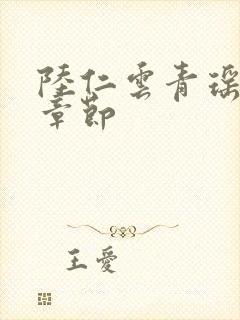 陸仁雲青瑶
章節
王愛